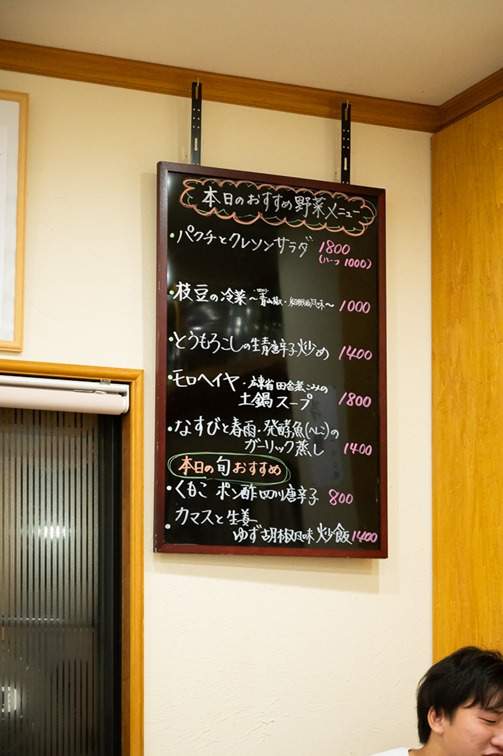 本日のおすすめ野菜メニュー
・パクチとクレソンサラダ 1800
(ハーフ 1000)
・枝豆の冷菜〜青山椒・風味〜 1000
・とうもろこしの生青唐辛子炒め 1400
・モロヘイヤ・広東省田舎煮こみの
土鍋スープ 1800
・なすびと春雨・発酵魚(へしこ)の
ガーリック蒸し 1400
本日の旬おすすめ
・くもこ ポン酢四川唐辛子 800
・カマスと生姜
ゆず胡椒風味炒飯 1400